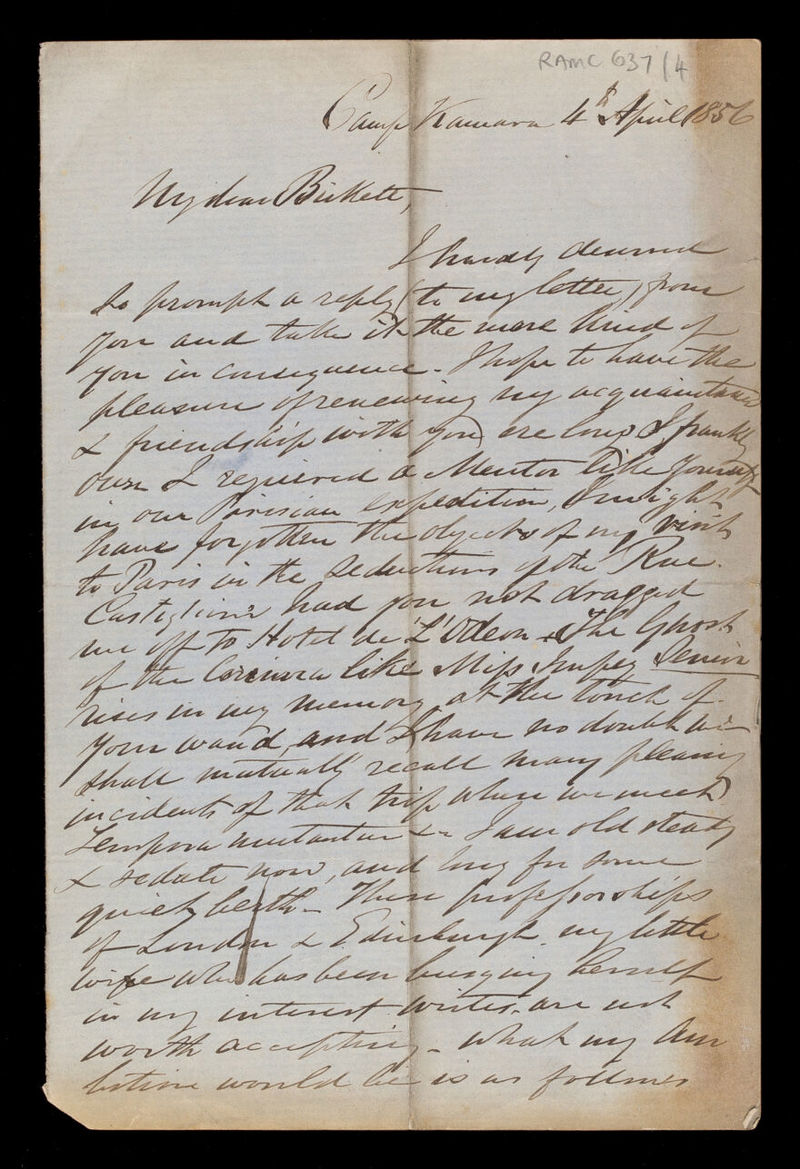 RAMC 637/4
Camp Kamara 4th April 1856
My dear Birkett,
I hardly deserved
so prompt a reply (to my letter) from
you and take it the more kind of
you in consequence. I hope to have the
pleasure of renewing my acquaintance
& friendship with you ere long I frankly
own I required a Mentor like yourself
in our Parisian expedition, I might
have forgotten the objects of my visit
to Paris in the seductions of the Rue
Castiglione had you not dragged
me off to Hotel de L'Odeon. The Ghost
of the like Miss Impey Senior
rises in my memory at the touch of
your wand, and I have no doubt we
shall mutually recall many pleasing
incidents of that trip when we meet
Tempora mutantur &c I am old steady
& sedate now, and long for some
quiet berth. These professorships
of London & Edinburgh, my little
wife who has been busying herself
in my interest writes, are not
worth accepting. what my Am
bition would be is as follows